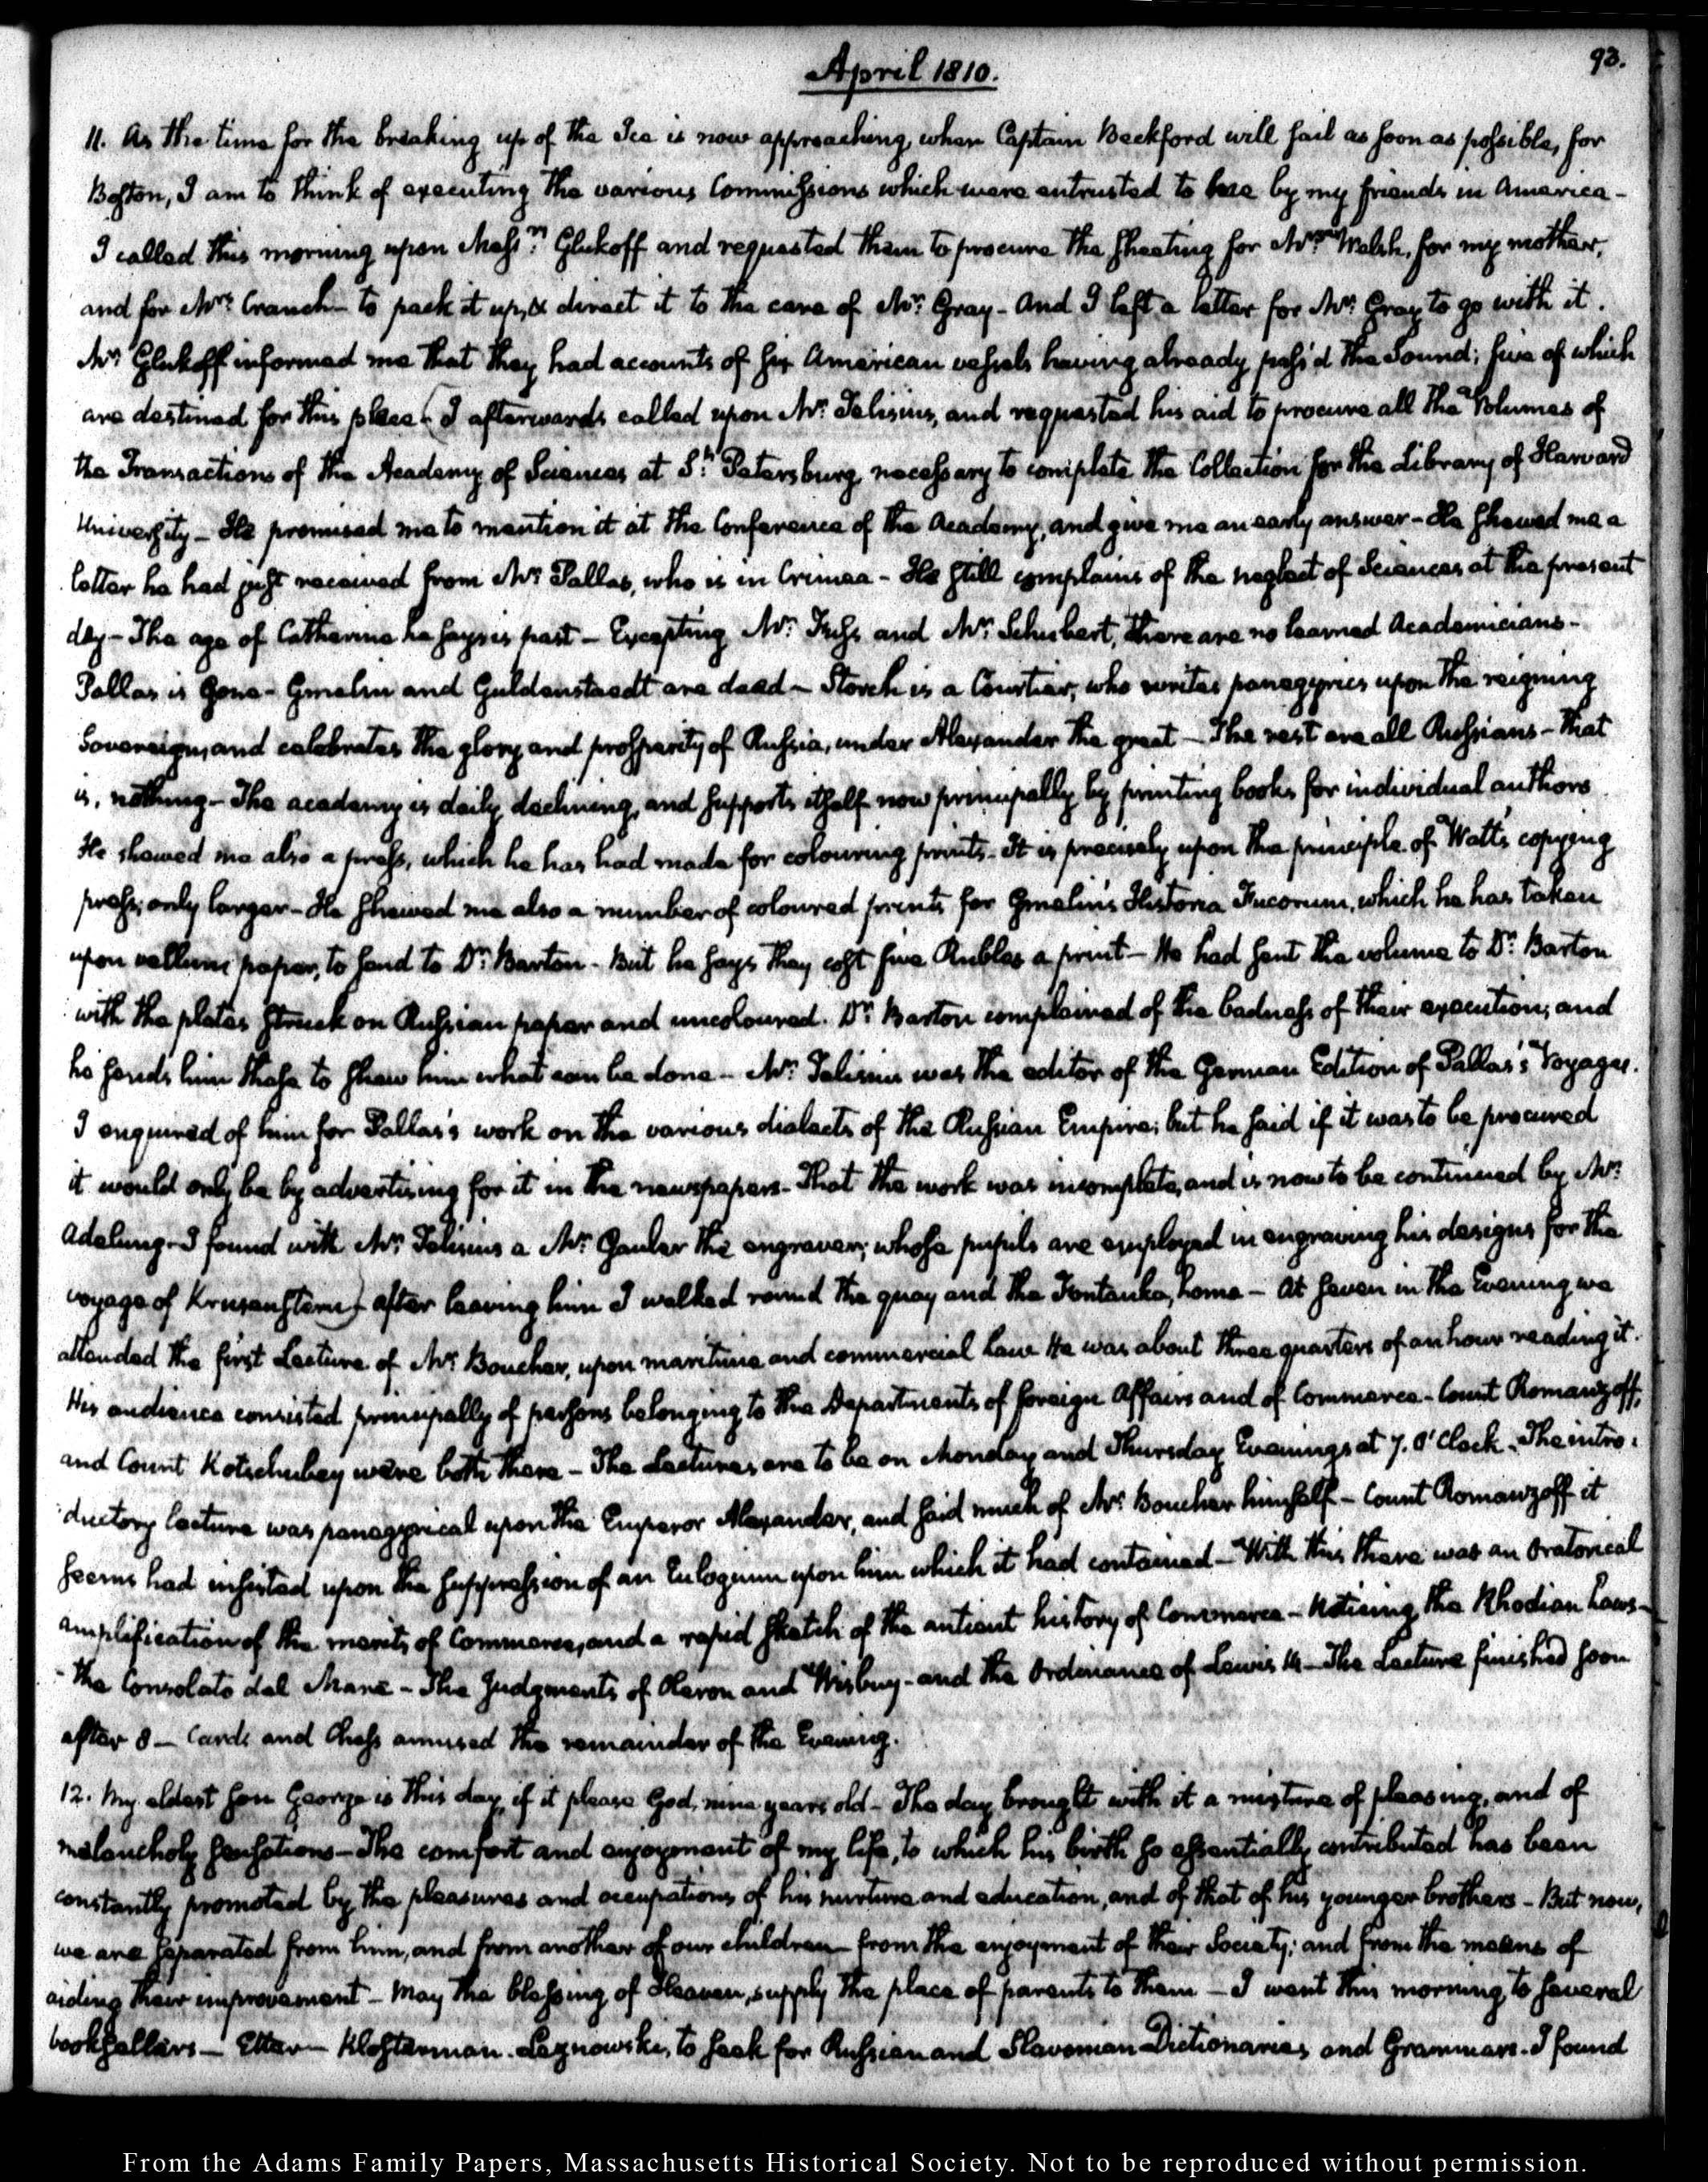 April 1810.
93.
11. As the time for the breaking up of the Ice is now approaching, when Captain Beckford will sail as soon as possible, for
Boston, I am to think of executing the various Commissions which were entrusted to me by my friends in America –
I called this morning upon Mess.rs Glukoff and requested them to procure the sheeting for Mrs. Welsh, for my mother,
and for Mrs. Cranch – to pack it up, & direct it to the care of Mr. Gray – And I left a letter for Mr. Gray to go with it.
Mr. Glukoff informed me that they had accounts of six American vessels having already pass'd the Sound; five of which
are destined for this place – (I afterwards called upon Mr. Telisius, and requested his aid to procure all the Volumes of
the Transactions of the Academy of Sciences at St. Petersburg, necessary to complete the Collection for the Library of Harvard
University – He promised me to mention it at the Conference of the Academy, and give me an early answer – He shewed me a
letter he had just received from Mr. Pallas, who is in Crimea – He still complains of the neglect of Sciences at the present
day – The age of Catherine he says is past – Excepting Mr. Fuss and Mr. Schubert, there are no learned Academicians –
Pallas is gone – Gmelin and Guldenstaedt are dead – Storch is a Courtier, who writes panegyrics upon the reigning
Sovereign, and celebrates the glory and prosperity of Russia, under Alexander the great – The rest are all Russians – that
is, nothing – The academy is daily declining, and supports itself now principally by printing books for individual authors
He shewed me also a press, which he has had made for colouring prints – It is precisely upon the principle of Watt's copying
press; only larger – He shewed me also a number of coloured prints for Gmelin's Historia Fucorum, which he has taken
upon vellum paper, to send to Dr. Barton – But he says they cost five Rubles a print – He had sent the volume to Dr. Barton
with the plates struck on Russian paper and uncoloured. Dr. Barton complained of the badness of their execution; and
he sends him these to shew him what can be done – Mr. Telisius was the editor of the German Edition of Pallas's Voyages.
I enquired of him for Pallas's work on the various dialects of the Russian Empire; but he said if it was to be procured
it would only be by advertising for it in the newspapers – That the work was incomplete, and is now to be continued by Mr.
Adelung – I found with Mr. Telisius a Mr. Gauler the engraver; whose pupils are employed in engraving his designs for the
voyage of Krusenstern) after leaving him I walked round the quay and the Fontanka, home – At seven in the Evening we
attended the first Lecture of Mr. Boucher, upon maritime and commercial Law He was about three quarters of an hour reading it.
His audience consisted principally of persons belonging to the Departments of foreign Affairs and of Commerce – Count Romanzoff,
and Count Kotschubey were both there – The Lectures are to be on Monday and Thursday Evenings at 7. O'Clock – The intro-
ductory lecture was panegyrical upon the Emperor Alexander, and said much of Mr. Boucher himself – Count Romanzoff it
seems had insisted upon the suppression of an Eulogium upon him which it had contained – With this there was an oratorical
amplification of the merits of Commerce, and a rapid sketch of the antient history of Commerce – Noticing the Rhodian Laws –
– the Consolato del Mare – The Judgments of Oleron and Wisbuy – and the Ordinance of Lewis 14 – The Lecture finished soon
after 8 – Cards and Chess amused the remainder of the Evening.
12. My eldest son George is this day, if it please God, nine years old – The day brought with it a mixture of pleasing, and of
melancholy sensations – The comfort and enjoyment of my life, to which his birth so essentially contributed has been
constantly promoted by the pleasures and occupations of his nurture and education, and of that of his younger brothers – But now,
we are separated from him, and from another of our children – from the enjoyment of their Society; and from the means of
aiding their improvement – May the blessing of Heaven, supply the place of parents to them – I went this morning to several
booksellers – Etter – Klosterman – Lognowski, to seek for Russian and Slavonian Dictionaries and Grammars. I found
From the Adams Family Papers, Massachusetts Historical Society. Not to be reproduced without permission.